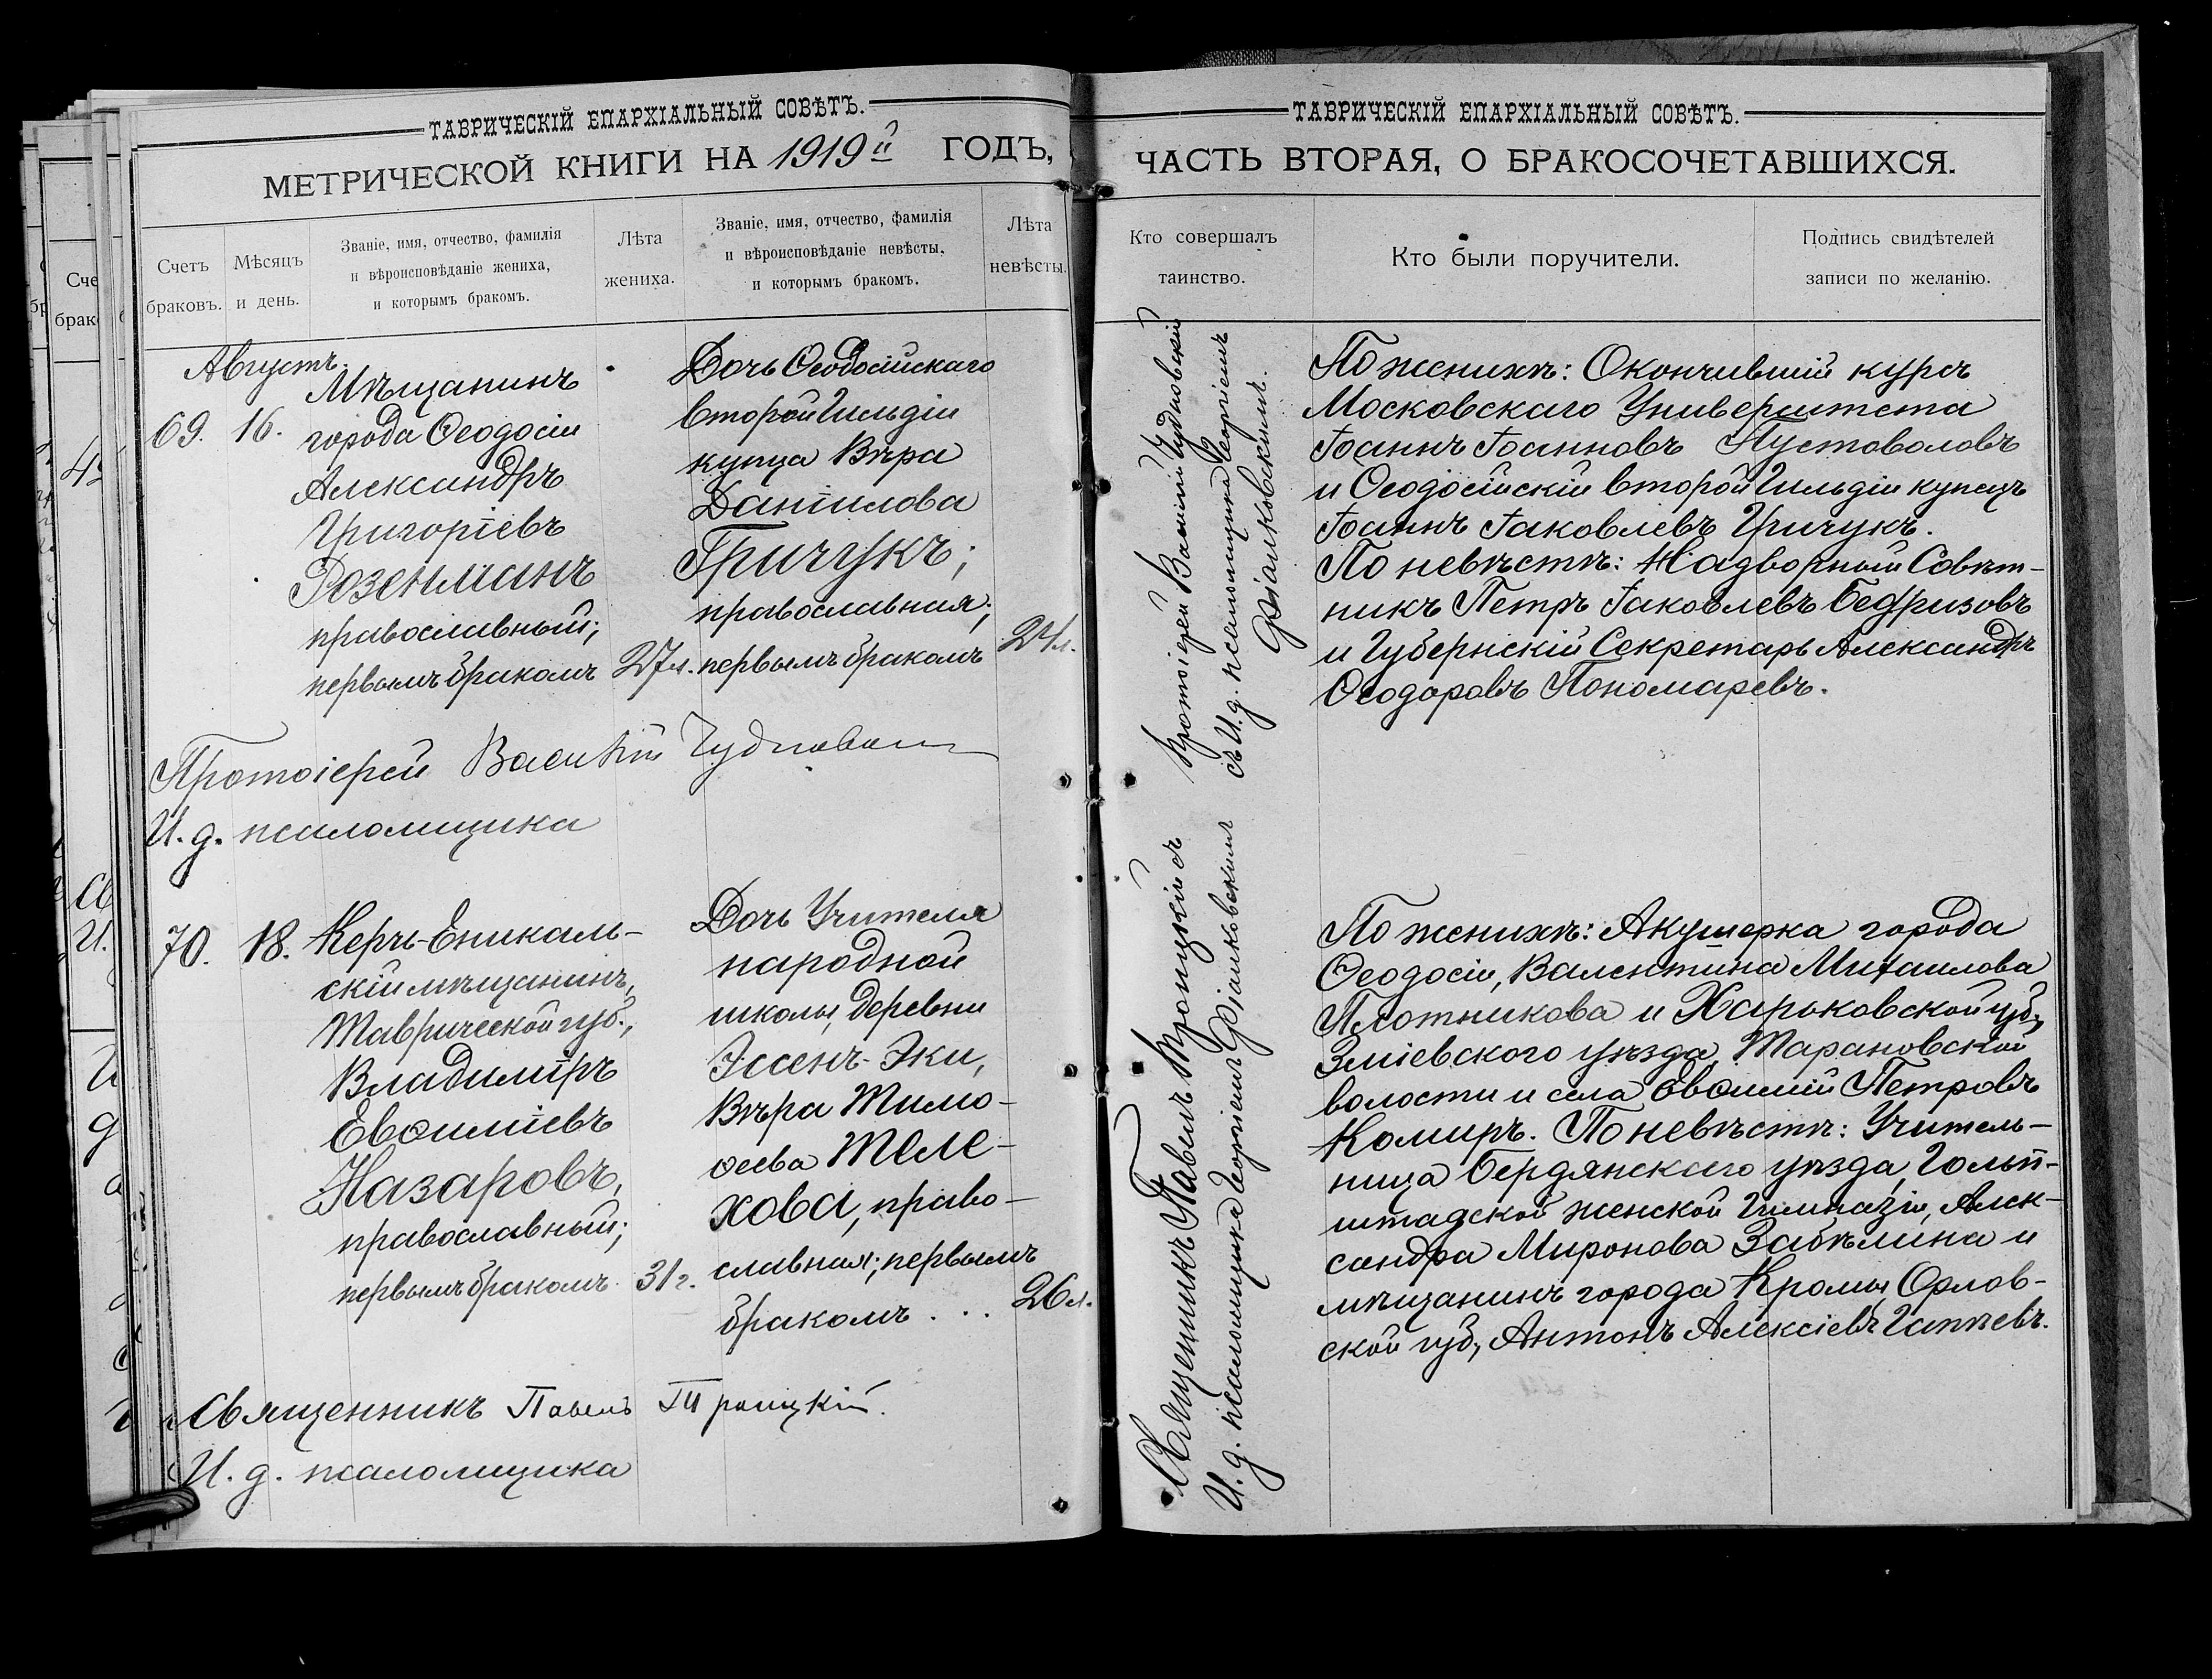 ТАВРИЧЕСКІЙ ЕПАРХІАЛЬНЫЙ СОВѢТЪ.
МЕТРИЧЕСКОЙ КНИГИ НА 1919й ГОДЪ,
Счетъ браковъ.
Мѣсяцъ и день.
Званіе, имя, отчество, фамилія
и вѣроисповѣданіе жениха,
и которымъ бракомъ.
Лѣта
жениха.
Званіе, имя, отчество, фамилія
и вѣроисповѣданіе невѣсты,
и которымъ бракомъ.
Лѣта
невѣсты.
Августъ.
69. 16.
Мѣщанинъ
города Ѳеодосіи
Александръ
Григоріевъ
Розенманъ
православный;
первымъ бракомъ
27л.
Дочь Ѳеодосійскаго
второй Гильдіи
купца Вѣра
Даніилова
Гричукъ;
православная;
первымъ бракомъ
24л.
Протоіерей Василій Чудновскій
И. д. псаломщика
70. 18.
Керчь-Еникаль-
скій мѣщанинъ,
Таврической губ.,
Владиміръ
Евѳиміевъ
Назаровъ,
православный;
первымъ бракомъ
31г.
Дочь Учителя
народной
школы, деревни
Эссенъ-Эки,
Вѣра Тимо-
ѳеева Теле-
хова, право-
славная; первымъ
бракомъ . .
26л.
Священникъ Павелъ Троицкій.
И. д. псаломщика
ТАВРИЧЕСКІЙ ЕПАРХІАЛЬНЫЙ СОВѢТЪ.
ЧАСТЬ ВТОРАЯ, О БРАКОСОЧЕТАВШИХСЯ.
Кто совершалъ
таинство.
Кто были поручители.
Подпись свидѣтелей
записи по желанію.
Протоіерей Василій Чудновскій
съ И. д. псаломщика Георгіемъ
Фіалковскимъ.
По женихѣ: Окончившій курсъ
Московскаго Университета
Іоаннъ Іоанновъ Пустоваловъ
и Ѳеодосійскій второй Гильдіи купецъ
Іоаннъ Іаковлевъ Гричукъ.
По невѣстѣ: Надворный Совѣт-
никъ Петръ Іаковлевъ Бедризовъ
и Губернскій Секретарь Александръ
Ѳеодоровъ Пономаревъ.
Священникъ Павелъ Троицкій съ
И. д. псаломщика Георгіемъ Фіалковскимъ
По женихѣ: Акушерка города
Ѳеодосіи, Валентина Михаилова
Плотникова и Харьковской губ.,
Зміевского уѣзда, Тарановской
волости и села Евѳимій Петровъ
Комиръ. По невѣстѣ: Учитель-
ница Бердянского уѣзда, Гольб-
штадской женской Гимназіи, Алек-
сандра Миронова Забѣлина и
мѣщанинъ города Кромы, Орлов-
ской губ., Антонъ Алексіевъ Гаппевъ.